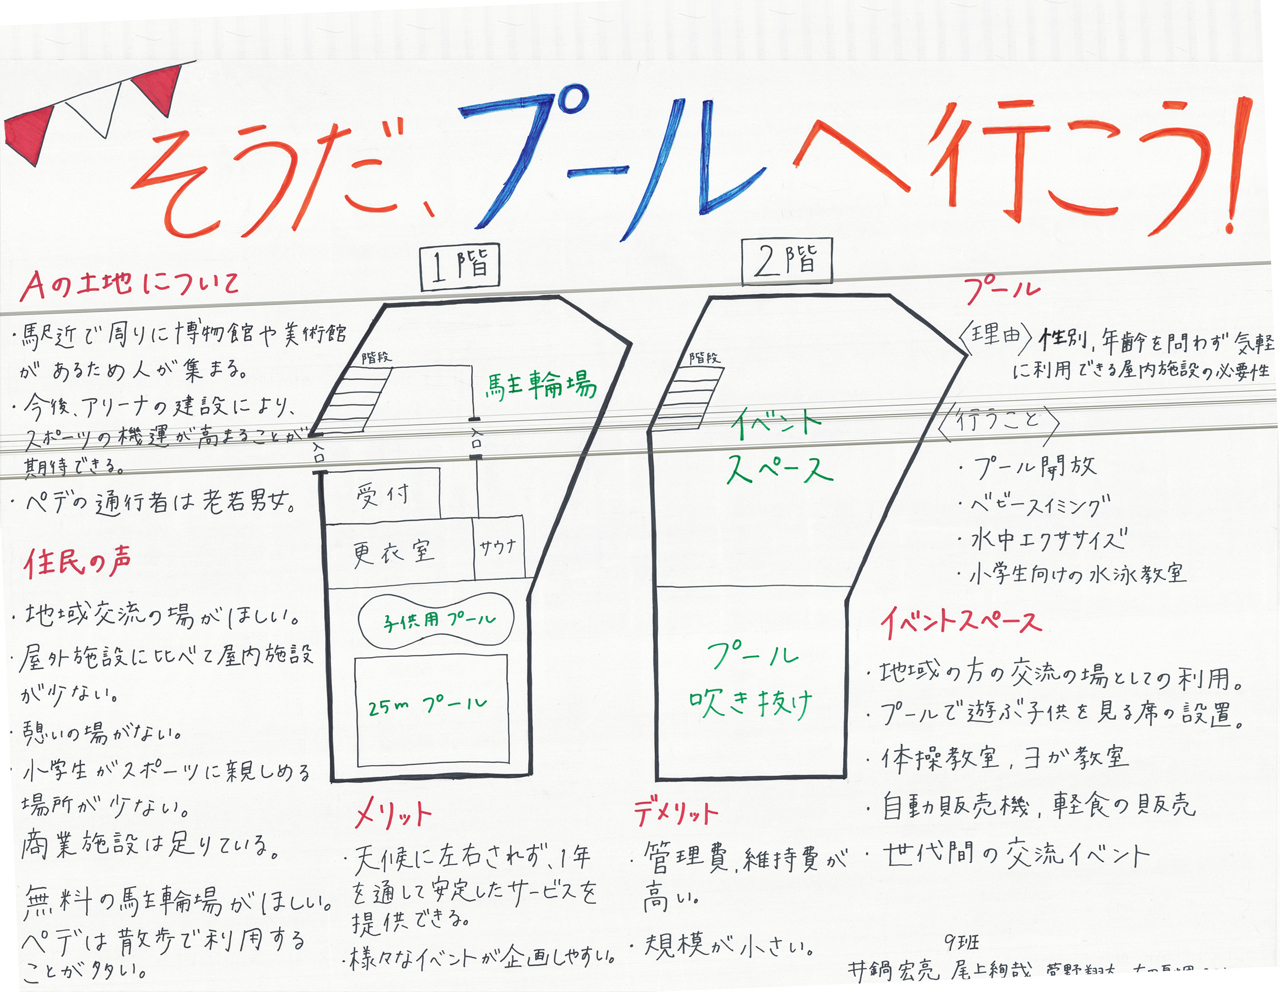 そうだ、プールへ行こう!
Aの土地について
・駅近で周りに博物館や美術館
があるため人が集まる。
・今後、アリーナの建設により、
スポーツの機運が高まることが
期待できる。
・ペデの通行者は老若男女。
住民の声
・地域交流の場がほしい。
・屋外施設に比べて屋内施設
が少ない。
・憩いの場がない。
・小学生がスポーツに親しめる
場所が少ない。
商業施設は足りている。
無料の駐輪場がほしい。
ペデは散歩で利用する
ことが多い。
1階
階段
駐輪場
入口
入口
受付
更衣室
サウナ
子供用プール
25m プール
2階
階段
イベント
スペース
プール
吹き抜け
メリット
・天候に左右されず、1年
を通して安定したサービスを
提供できる。
・様々なイベントが企画しやすい。
デメリット
・管理費,維持費が
高い。
・規模が小さい。
プール
〈理由〉性別,年齢を問わず気軽
に利用できる屋内施設の必要性
〈行うこと〉
・プール開放
・ベビースイミング
・水中エクササイズ
・小学生向けの水泳教室
イベントスペース
・地域の方の交流の場としての利用。
・プールで遊ぶ子供を見る席の設置。
・体操教室,ヨガ教室
・自動販売機,軽食の販売
・世代間の交流イベント
9班
井鍋宏亮 尾上絢哉 菅野翔太